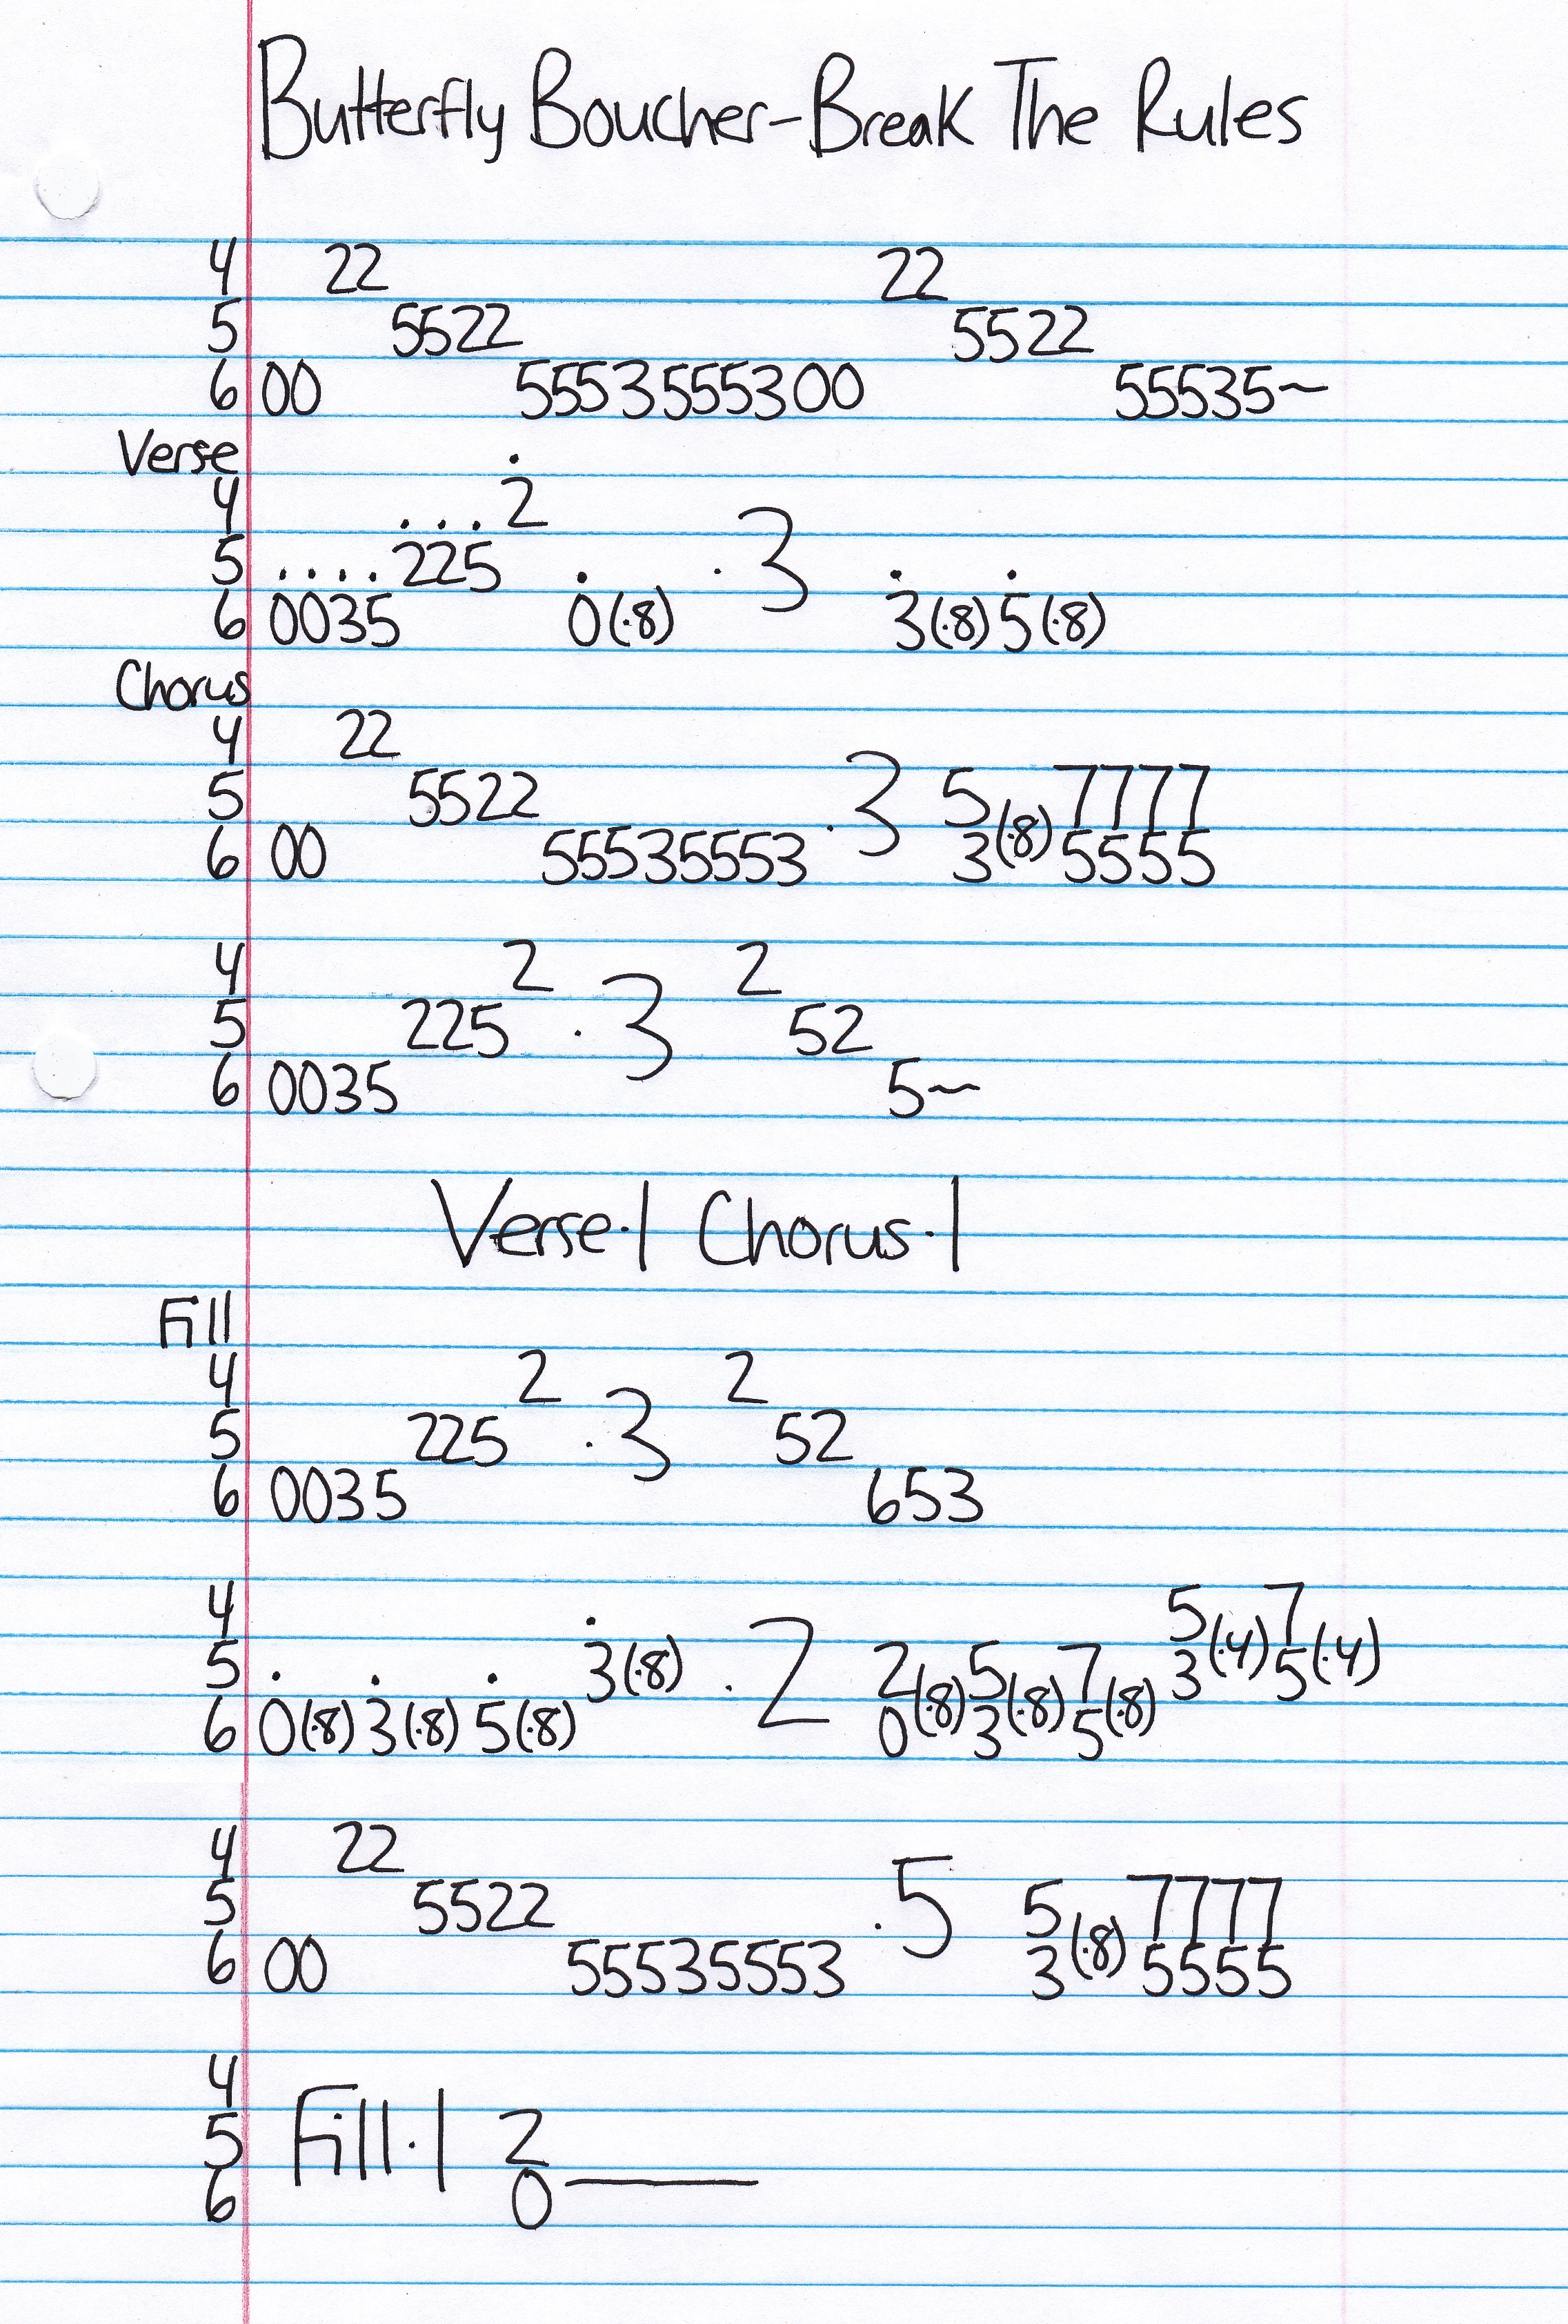 Butterfly Boucher-Break The Rules
4 22 22
5 5522 5522
6 00 5553555300 55535~
Verse
4 . . . 2̇
5 . . . . 225 . .3 . .
6 0035 0(·8) 3(·8) 5(·8)
Chorus
4 22
5 5522 .3 5 7777
6 00 55535553 3(·8) 5555
4 2 2
5 225 .3 52
6 0035 5~
Verse·1 Chorus·1
Fill
4 2 2
5 225 .3 52
6 0035 653
4 . 5 7
5 . . . 3(·8) .2 2 5 7 3(·4) 5(·4)
6 0(·8) 3(·8) 5(·8) 0(·8) 3(·8) 5(·8)
4 22
5 5522 .5 5 7777
6 00 55535553 3(·8) 5555
4
5 Fill·1 2
6 0___